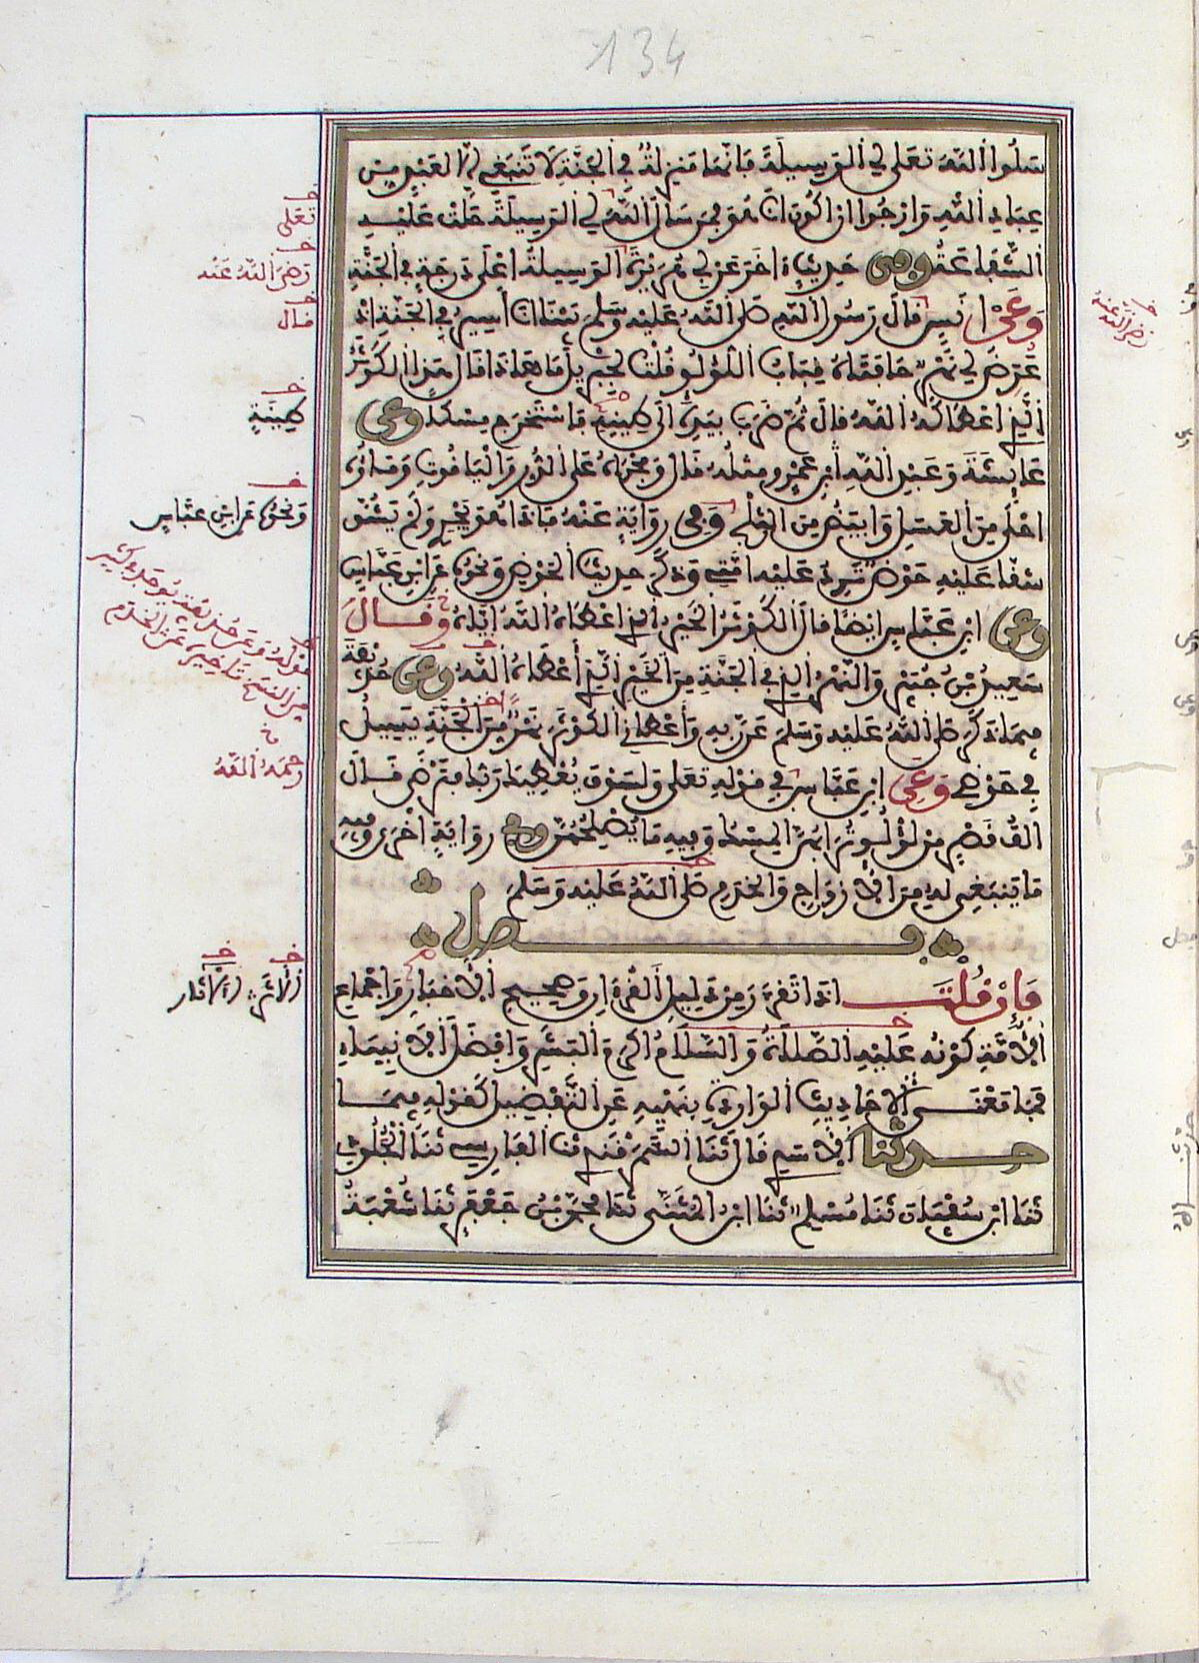 134
سَلُوا اللهَ تعَلى لي الوَسِيلَةَ فَإنّهَا مَنزِلةٌ في الجَنّةِ لَا تَنْبَغِي إلا لعَبْدٍ مِنْ
عِبَادِ اللهِ وَأرْجُوا ان اكُونَ انَا هُوَ فمَن سَألَ اللهَ لي الوَسِيلَةَ حَلَّتْ عَلَيْهِ
الشَّفَاعَةُ وفي حَدِيثٍ اخَرَ عَن ابي هُرَيْرَةَ الوَسِيلةُ اعْلى دَرَجَةٍ في الجَنَّةِ
وَعَنْ انَسٍ قالَ رَسُولُ اللهِ صَلى اللهُ عَلَيْهِ وسَلمَ بَيْنَا انَا أسِيرُ في الجَنّةِ اذْ
عَرَضَ لي نَهْرٌ حَافَتَاهُ قِبَابُ اللّؤْلُؤِ قُلْتُ لجِبْرِيلَ مَا هَاذَا قالَ هَذَا الكَوْثَرُ
الّذِي اعْطَاكَهُ اللهُ قالَ ثُمَّ ضَرَبَ بيَدِهِ الى طِينِهِ فَاسْتَخْرَجَ مِسْكًا وعن
عَائِشَةَ وَعَبْدِ اللهِ ابنِ عَمْرٍو مِثْلُهُ قَالَ وَمَجْرَاهُ عَلى الدُّرِّ وَالْيَاقُوتِ وَمَاؤُهُ
احْلَى مِنَ العَسَلِ وَأبْيَضُ مِنَ الثلْجِ وَفي رِوَايَةٍ عَنْهُ فَإذَا هُوَ يَجْرِي وَلَمْ يَشُقَّ
شَقًّا عَلَيْهِ حَوْضٌ تَرِدُ عَلَيْهِ امَّتِي وَذَكَرَ حَدِيثَ الحَوْضِ وَنَحْوُهُ عَن ابنِ عَبَّاسٍ
وعن ابْنِ عَبَّاسٍ ايْضًا قالَ الكَوْثَرُ الخَيْرُ الّذِي اعْطَاهُ اللهُ ايَّاهُ وَقَالَ
سَعِيدُ بْنُ جُبَيْرٍ وَالنَّهْرُ الذِي في الجَنَّةِ مِنَ الخَيْرِ الّذِي أعْطَاهُ اللهُ وعن حُذَيْفَةَ
فِيمَا ذَكَرَ صَلى اللهُ عَلَيْهِ وَسَلمَ عَن رَّبِّهِ وَأعْطَانِي الكَوْثَرَ نَهْرٌ مِنَ الجَنَّةِ يَسِيلُ
في حَوْضِي وَعَنِ ابنِ عَبَّاسٍ في قوْلِهِ تعَلى وَلسَوْفَ يُعْطِيكَ رَبُّكَ فَتَرْضى قَالَ
الفُ قَصْرٍ مِن لؤلُؤٍ تُرَابُهُنَّ المِسْكُ وَفِيهِ مَا يُصْلِحُهُنَّ وفي رِوَايَةٍ أخْرَى وَفِيهِ
مَا يَنبَغِي لَهُ مِنَ الازْوَاجِ وَالخَدَمِ صَلى اللهُ عَلَيْهِ وَسَلمَ
فصل
فَإن قُلْتَ اذَا تَقَرَّرَ مِنْ دَلِيلِ القُرْءَانِ وَصَحِيحِ الاخبَارِ وَاجْمَاعِ
الامَّةِ كَوْنُهُ عَلَيْهِ الصَّلَاةُ وَالسَّلَامُ اكْرَمَ البَشَرِ وَافْضَلَ الانبِيَاءِ
فَمَا مَعْنَى الاحَادِيثِ الوَارِدَةِ بِنَهْيِهِ عَنِ التَّفْضِيلِ كَقوْلِهِ فِيمَا
حدثنا الاسَدِي قالَ ثَنَا السَّمَرْقَندِي ثنَا الفَارِسِي ثَنَا الجُلُودِي
ثَنَا ابْنُ سُفْيَانَ ثَنَا مُسْلِمٌ ثَنَا ابْنُ المُثَنَّى ثنَا مُحَمَّدُ بْنُ جَعْفَرٍ ثَنَا شُعْبَةُ
تعَلى
رَضِيَ اللهُ عَنْه
قال
طِينَةٍ
وَنحْوُهُ عَن ابْنِ عبَّاسٍ
رحمَهُ اللهُ
الاثَرِ الآثار
رَضِيَ اللهُ عَنْهُ